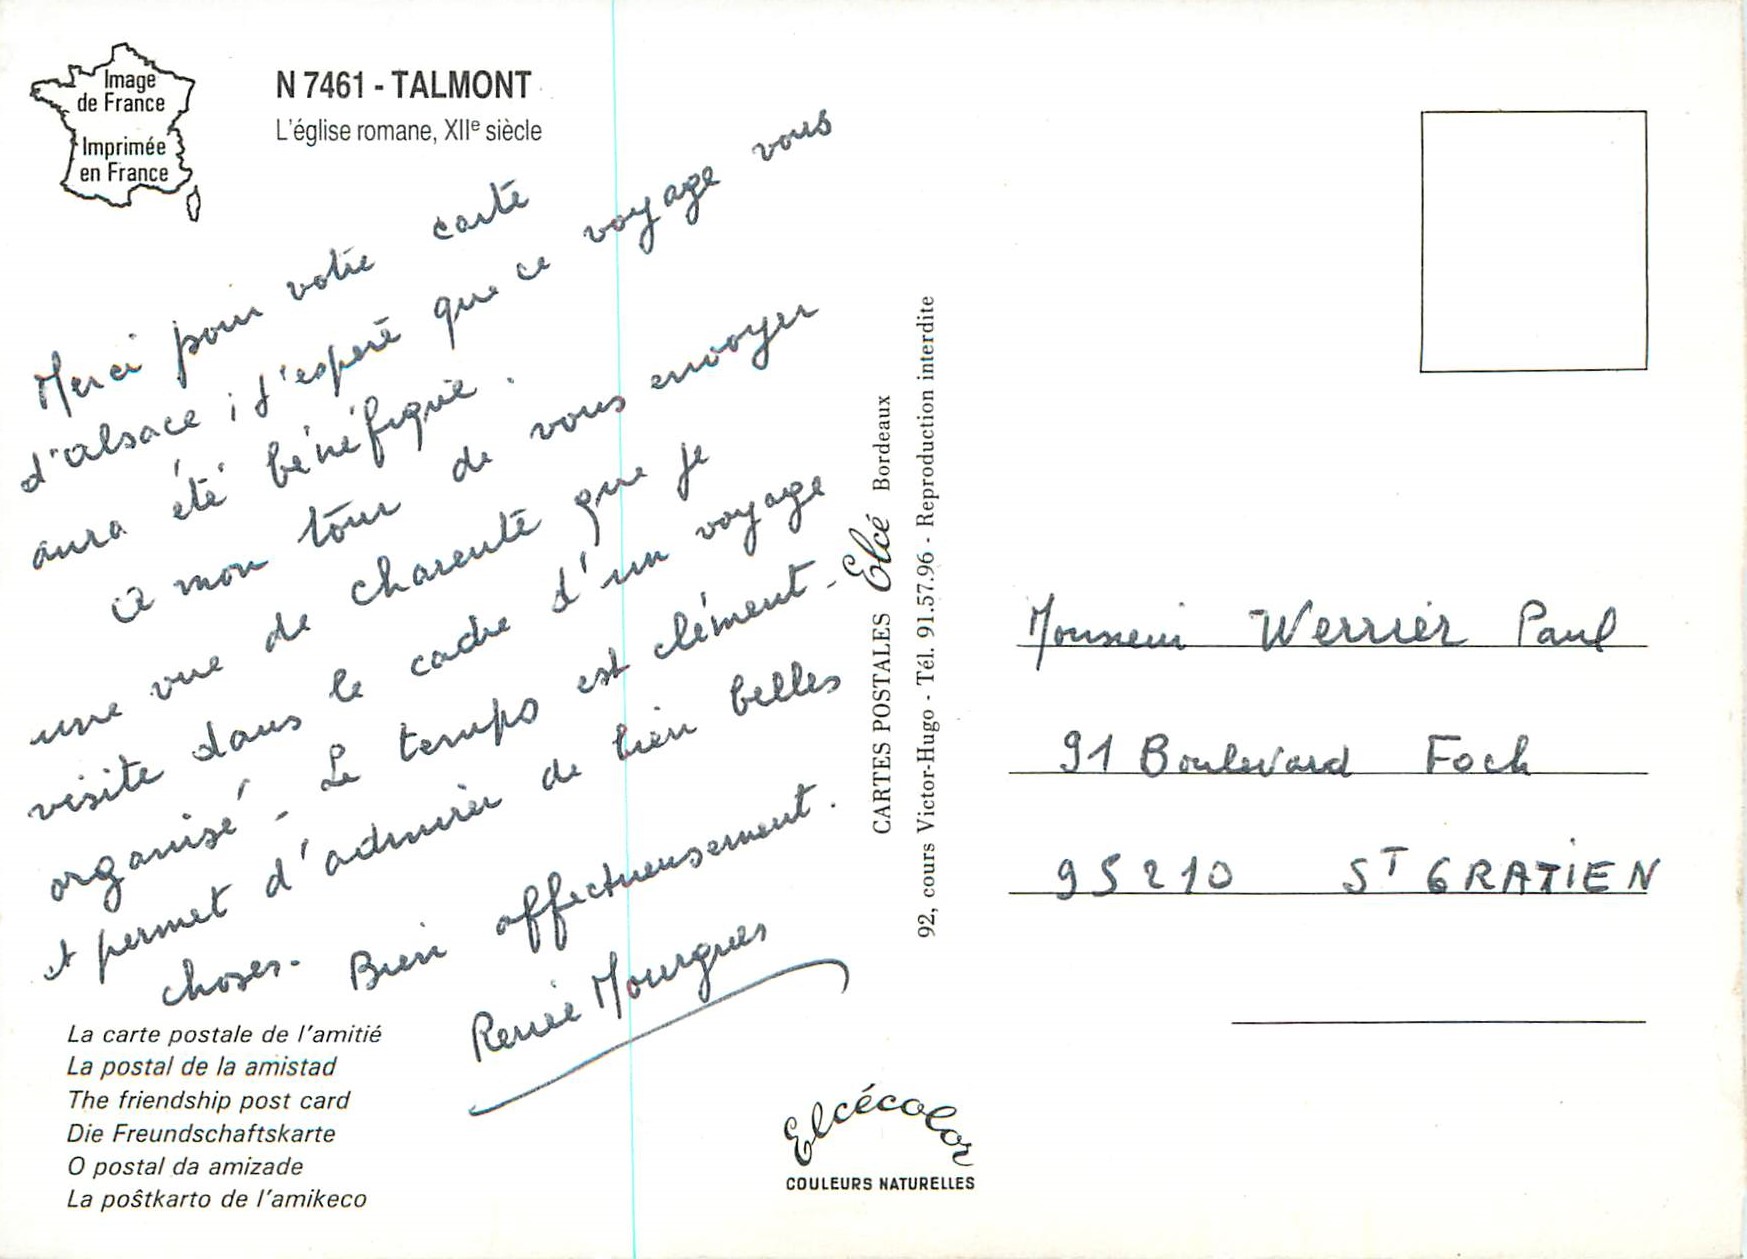 Image
de France
Imprimée
en France
N 7461 - TALMONT
L'église romane, XIIe siècle
Merci pour votre carte
d'alsace ; j'espere que ce voyage vous
aura été bénéfique.
a mon tour de vous envoyer
une vue de charente que je
visite dans le cadre d'un voyage
organisé - Le temps est clément -
et permet d'admirer de bien belles
choses. Bien affectueusement.
Renée Mourgues
La carte postale de l'amitié
La postal de la amistad
The friendship post card
Die Freundschaftskarte
O postal da amizade
La poŝtkarto de l'amikeco
CARTES POSTALES Elcé Bordeaux
92, cours Victor-Hugo - Tél. 91.57.96 - Reproduction interdite
Elcécolor
COULEURS NATURELLES
Monsieur Werrier Paul
91 Boulevard Foch
95210 ST GRATIEN